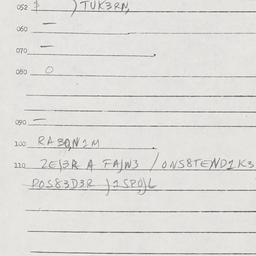 052 $ )TUK3RN,
060 —
070 —
080 O
090 —
100 RA3QN1M
110 2E)3R A FA)N3 /ONS8TEND1K3
POS83D3R )1SPO)L